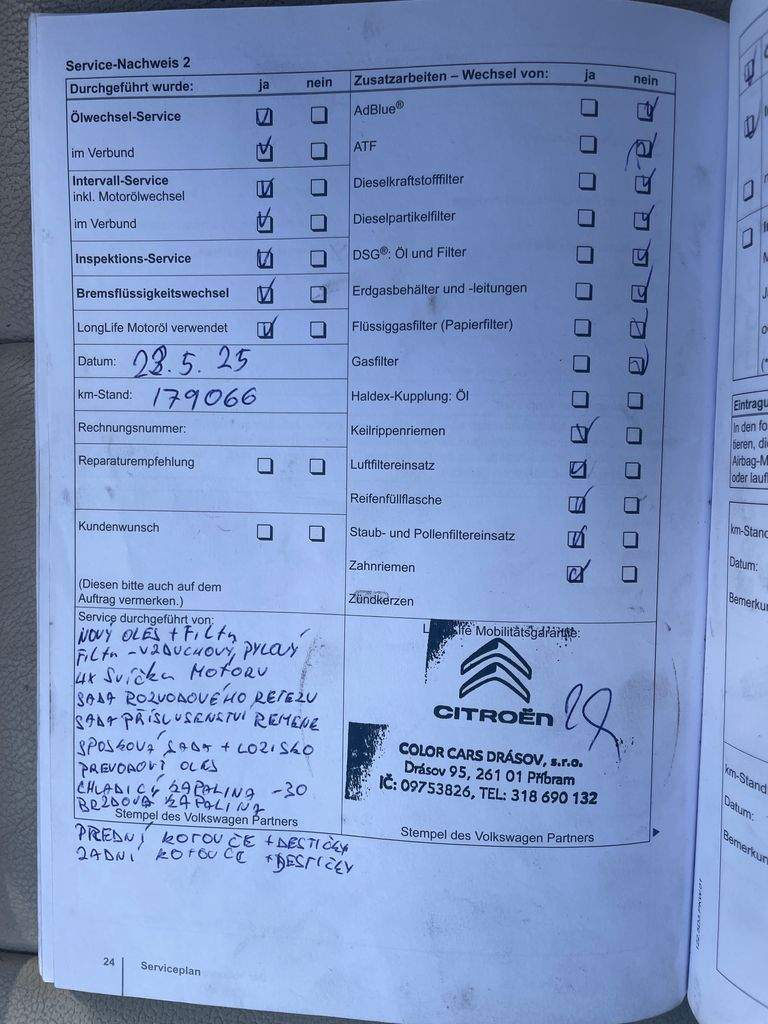 Service-Nachweis 2
Durchgeführt wurde: ja nein
Ölwechsel-Service
im Verbund
Intervall-Service
inkl. Motorölwechsel
im Verbund
Inspektions-Service
Bremsflüssigkeitswechsel
LongLife Motoröl verwendet
Datum: 28.5.25
km-Stand: 179066
Rechnungsnummer:
Reparaturempfehlung
Kundenwunsch
(Diesen bitte auch auf dem
Auftrag vermerken.)
Zusatzarbeiten – Wechsel von: ja nein
AdBlue®
ATF
Dieselkraftstofffilter
Dieselpartikelfilter
DSG®: Öl und Filter
Erdgasbehälter und -leitungen
Flüssiggasfilter (Papierfilter)
Gasfilter
Haldex-Kupplung: Öl
Keilrippenriemen
Luftfiltereinsatz
Reifenfüllflasche
Staub- und Pollenfiltereinsatz
Zahnriemen
Zündkerzen
Service durchgeführt von:
NOVÝ OLEJ + FILTR
FILTR - VZDUCHOVÝ, PYLOVÝ
4X SVÍČKA MOTORU
SADA ROZVODOVÉHO ŘETEZU
SADA PŘÍSLUSENSTVÍ ŘEMENE
SPOJKOVÁ SADA + LOZISKO
PREVODOVÝ OLEJ
CHLADICÍ KAPALINA -30
BRZDOVÁ KAPALINA
Stempel des Volkswagen Partners
PŘEDNÍ KOTOUČE + DESTIČKY
ZADNÍ KOTOUČE + DESTIČKY
Mobilitätsgarantie:
CITROËN
COLOR CARS DRÁSOV, s.r.o.
Drásov 95, 261 01 Příbram
IČ: 09753826, TEL: 318 690 132
Stempel des Volkswagen Partners
24 Serviceplan
Eintragu
In den fo
tieren, di
Airbag-M
oder lauf
km-Stand
Datum:
Bemerkur
km-Stand
Datum:
Bemerkun